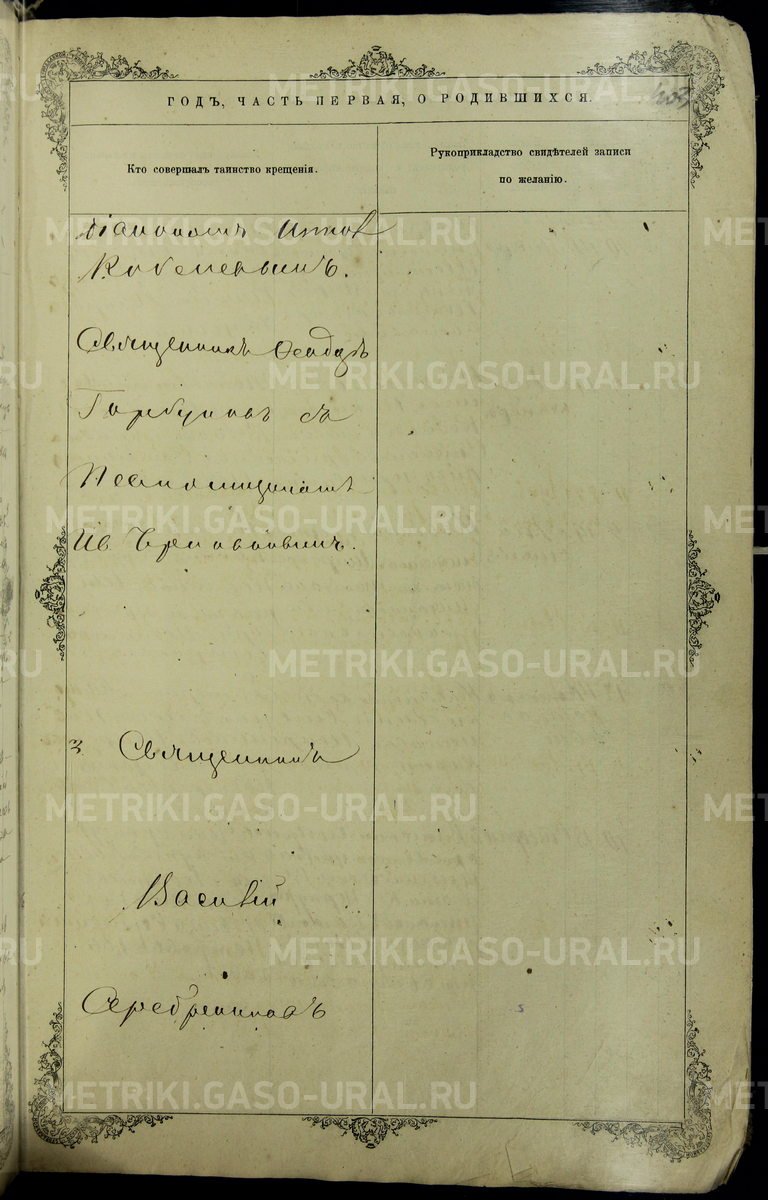 ГОДЪ, ЧАСТЬ ПЕРВАЯ, О РОДИВШИХСЯ.
403
Кто совершалъ таинство крещенія.
Рукоприкладство свидѣтелей записи
по желанію.
Діакономъ
Кобелевымъ.
Священникъ Ѳеодоръ
Горбуновъ съ
Псаломщикомъ
Ив.
З Священникъ
Василій
Серебрениковъ
METRIKI.GASO-URAL.RU